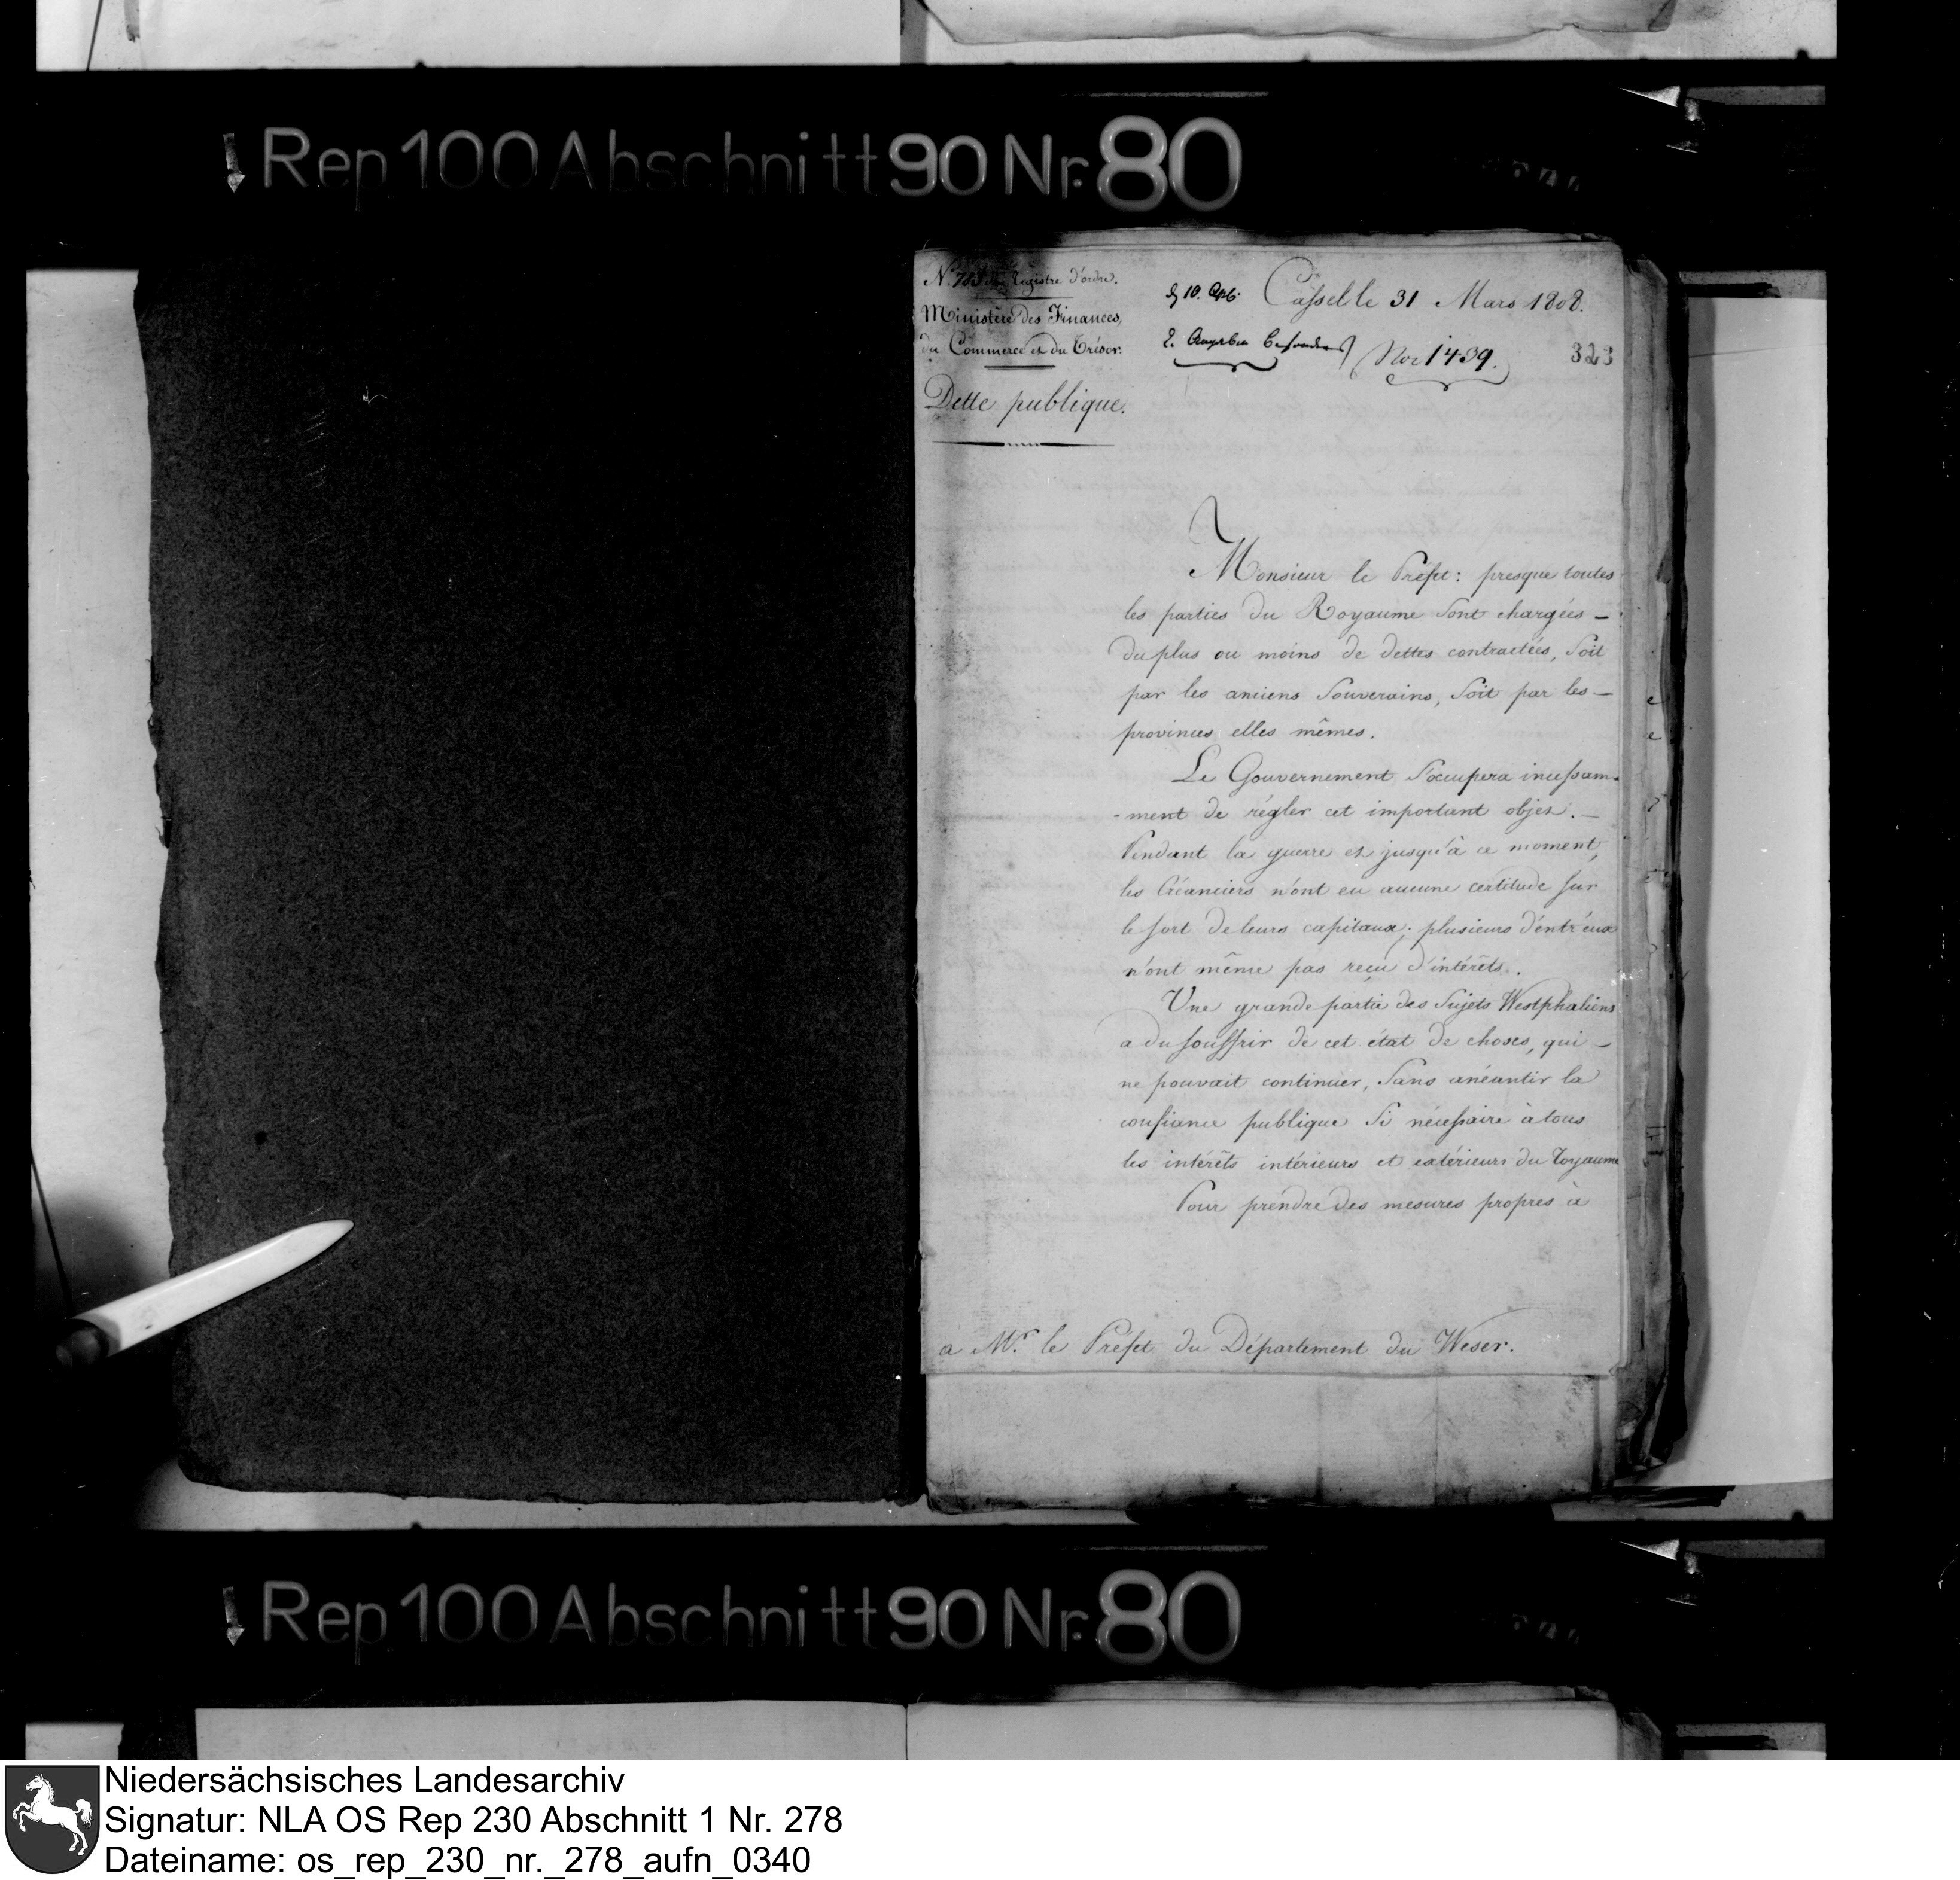 Rep 100 Abschnitt 90 Nr. 80
du Registre d'ordre.
Ministère des Finances,
du Commerce et du Trésor.
Dette publique.
Cassel le 31 Mars 1808.
Nor 1439.
323
Monsieur le Préfet: presque toutes
les parties du Royaume sont chargées –
du plus ou moins de dettes contractées, soit
par les anciens Souverains, soit par les –
provinces elles mêmes.
Le Gouvernement s'occupera incessam-
-ment de régler cet important objet. –
Pendant la guerre et jusqu'à ce moment,
les Créanciers n'ont eu aucune certitude sur
le sort de leurs capitaux; plusieurs d'entr'eux
n'ont même pas reçu d'intérêts.
Une grande partie des Sujets Westphaliens
a du souffrir de cet état de choses, qui –
ne pouvait continuer, sans anéantir la
confiance publique si nécessaire à tous
les intérêts intérieurs et extérieurs du royaume
Pour prendre des mesures propres à
a Mr. le Préfet du Département du Weser.
Rep 100 Abschnitt 90 Nr. 80
Niedersächsisches Landesarchiv
Signatur: NLA OS Rep 230 Abschnitt 1 Nr. 278
Dateiname: os_rep_230_nr._278_aufn_0340